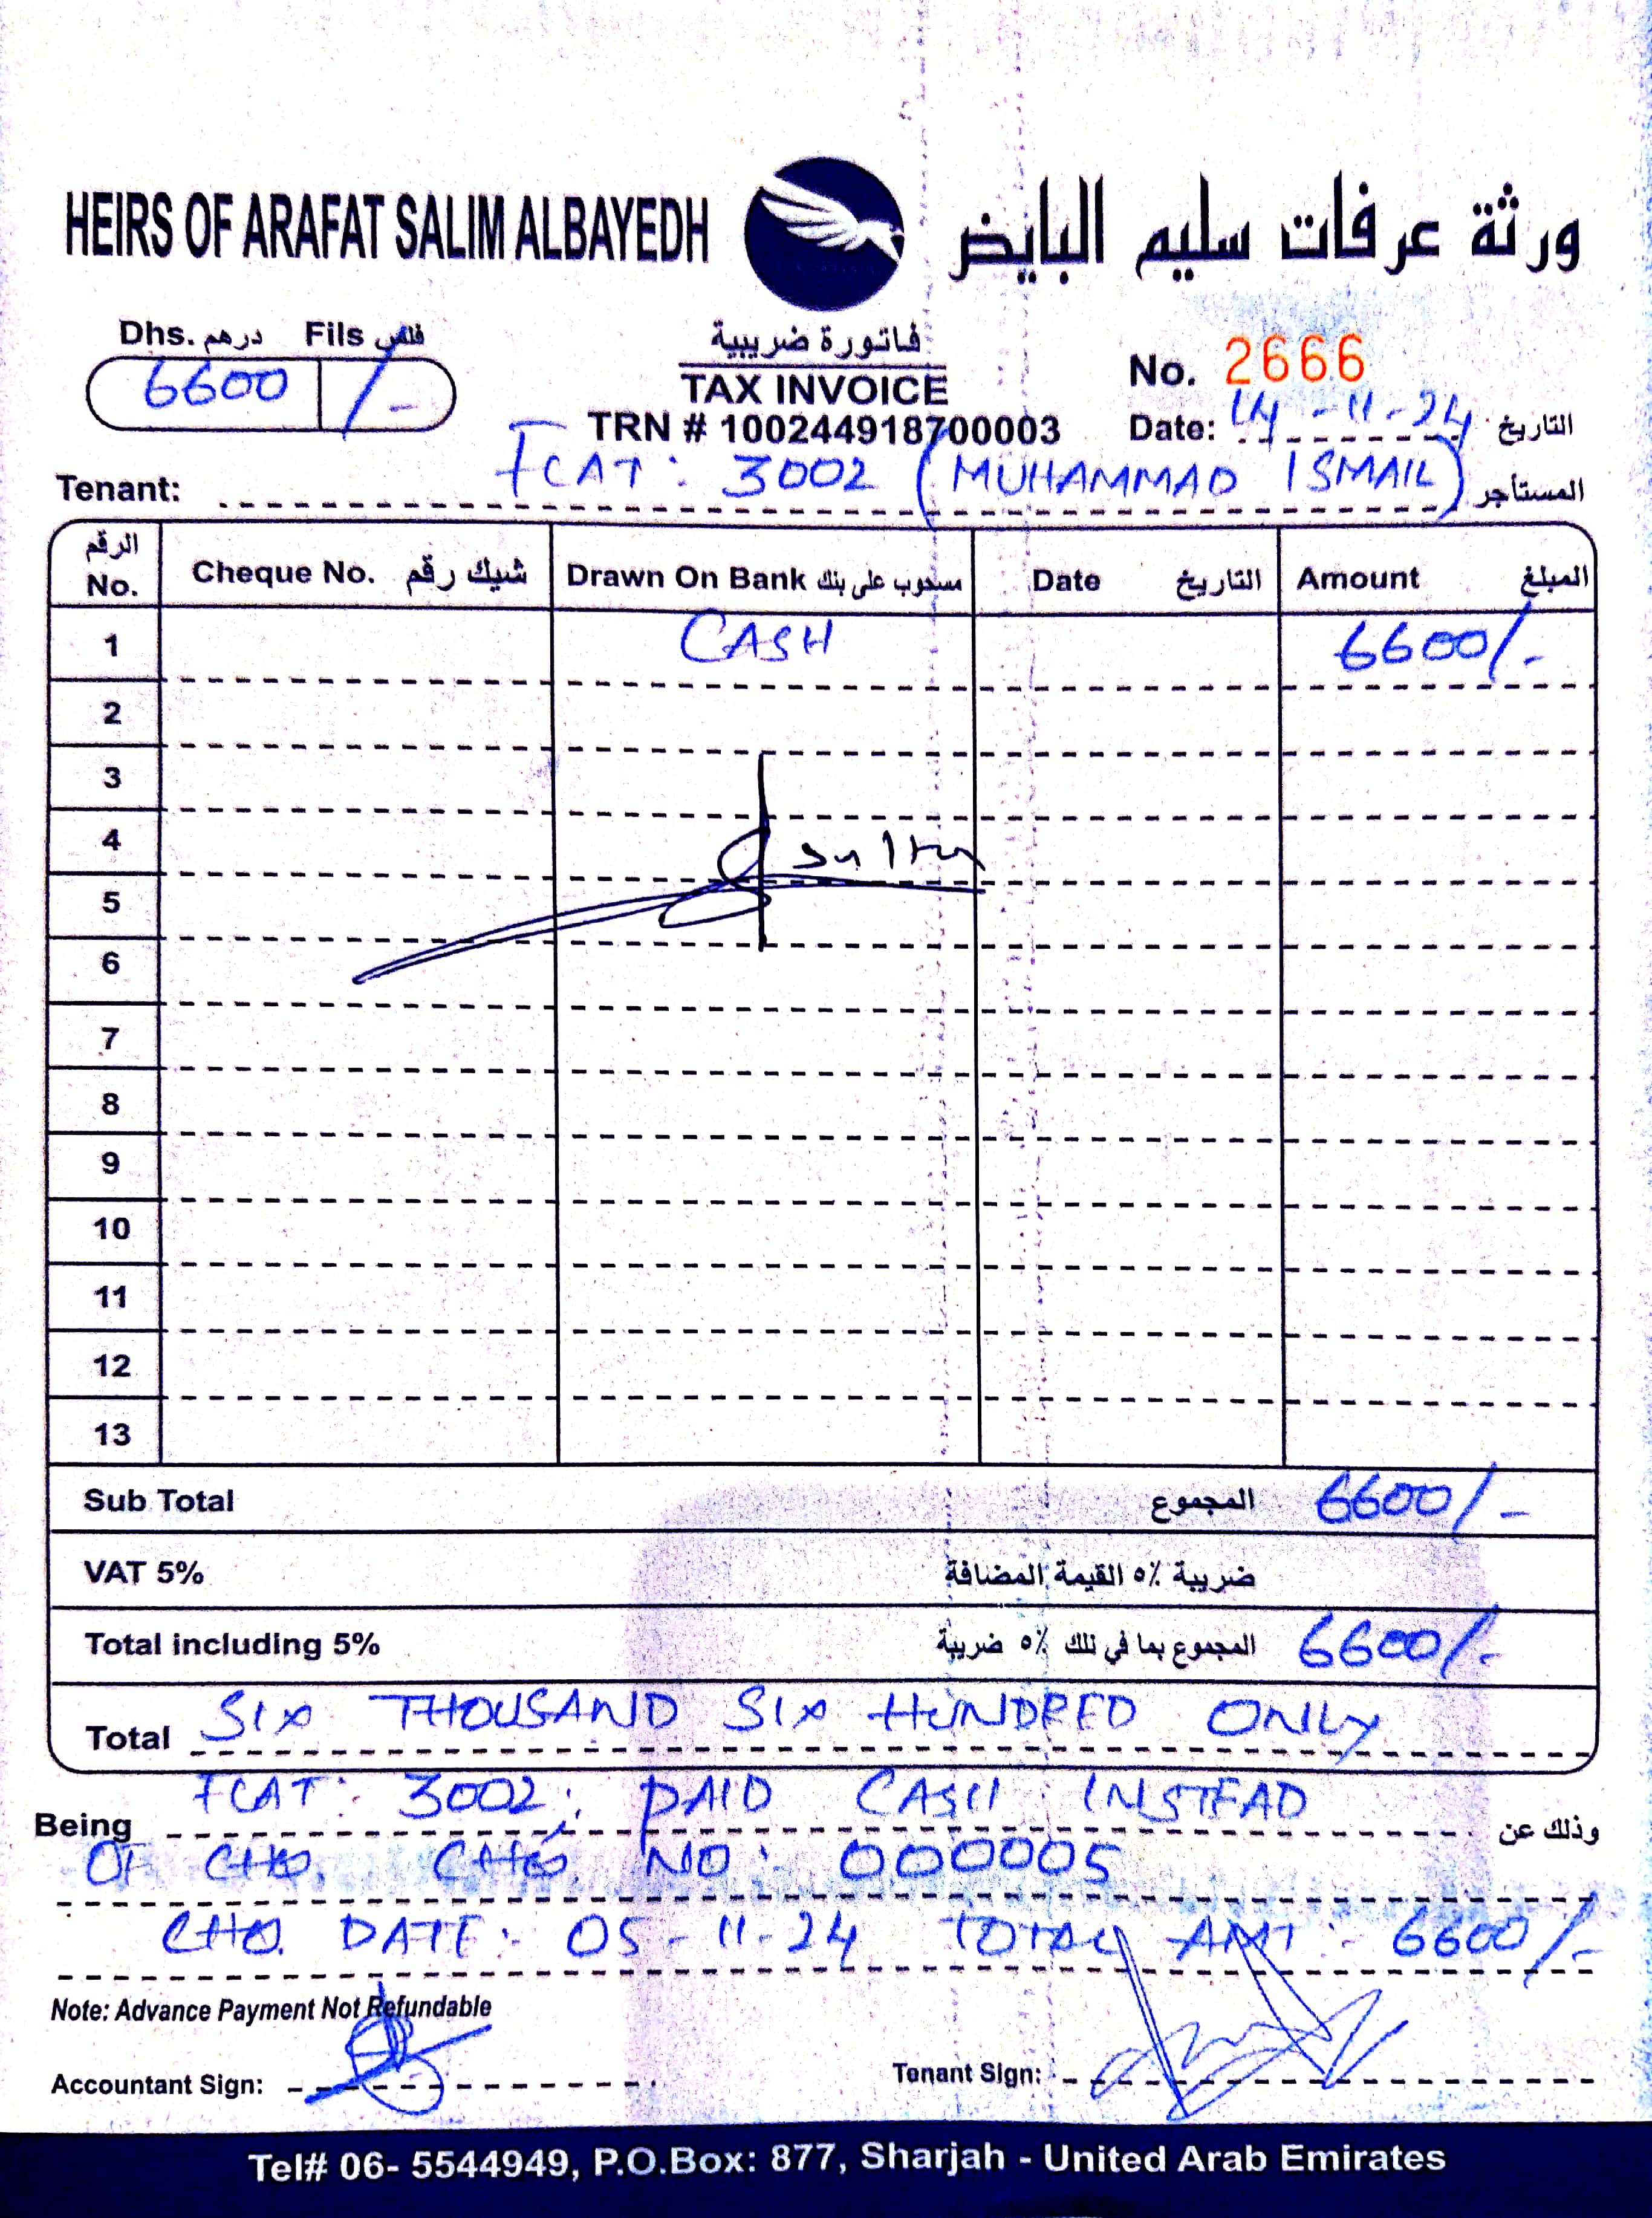 HEIRS OF ARAFAT SALIM ALBAYEDH ورثة عرفات سليم البايض
Dhs. درهم Fils فلس
6600 /-
فاتورة ضريبية
TAX INVOICE
TRN # 100244918700003
No. 2666
Date: 14-11-24 التاريخ
Tenant: FLAT: 3002 (MUHAMMAD ISMAIL) المستأجر
الرقم No. Cheque No. شيك رقم Drawn On Bank مسحوب على بنك Date التاريخ Amount المبلغ
1 CASH 6600/-
2
3
4
5
6
7
8
9
10
11
12
13
Sub Total المجموع 6600/-
VAT 5% ضريبة ٥٪ القيمة المضافة
Total including 5% المجموع بما في ذلك ٥٪ ضريبة 6600/-
Total SIX THOUSAND SIX HUNDRED ONLY
Being FLAT: 3002; PAID CASH INSTEAD وذلك عن
OF CHQ. CHQ NO: 000005
CHQ. DATE: 05-11-24 TOTAL AMT: 6600/-
Note: Advance Payment Not Refundable
Accountant Sign: Tenant Sign:
Tel# 06- 5544949, P.O.Box: 877, Sharjah - United Arab Emirates